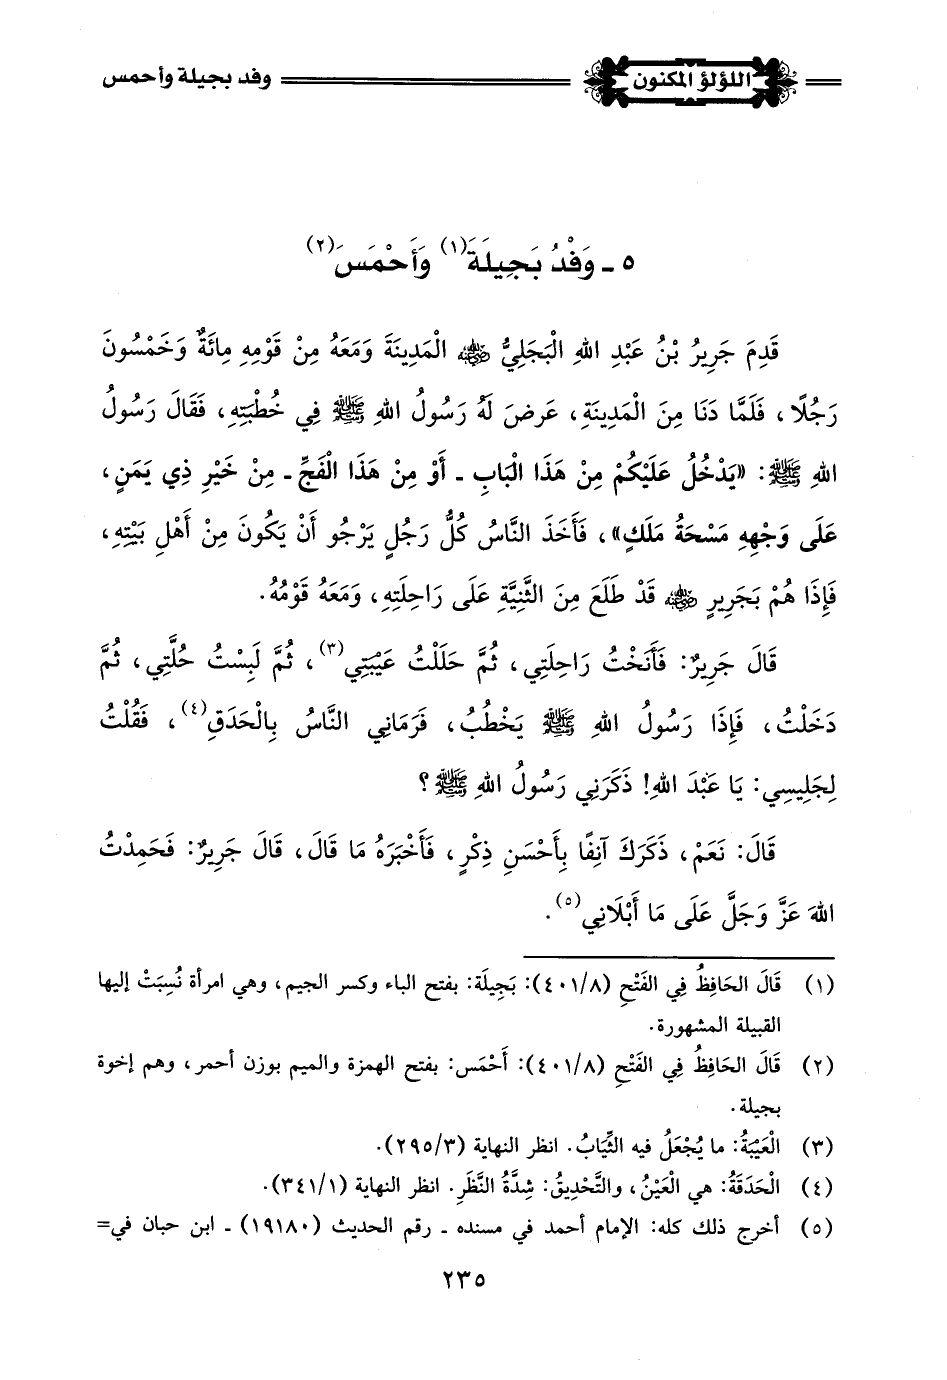 اللؤلؤ المكنون وفد بجيلة وأحمس
٥ ـ وَفْدُ بَجِيلَةَ(١) وَأَحْمَسَ(٢)
قَدِمَ جَرِيرُ بْنُ عَبْدِ اللهِ الْبَجَلِيُّ رضي الله عنه الْمَدِينَةَ وَمَعَهُ مِنْ قَوْمِهِ مِائَةٌ وَخَمْسُونَ
رَجُلًا، فَلَمَّا دَنَا مِنَ الْمَدِينَةِ، عَرضَ لَهُ رَسُولُ اللهِ ﷺ فِي خُطْبَتِهِ، فَقَالَ رَسُولُ
اللهِ ﷺ: «يَدْخُلُ عَلَيْكُمْ مِنْ هَذَا الْبَابِ ـ أَوْ مِنْ هَذَا الْفَجِّ ـ مِنْ خَيْرِ ذِي يَمَنٍ،
عَلَى وَجْهِهِ مَسْحَةُ مَلَكٍ»، فَأَخَذَ النَّاسُ كُلُّ رَجُلٍ يَرْجُو أَنْ يَكُونَ مِنْ أَهْلِ بَيْتِهِ،
فَإِذَا هُمْ بَجَرِيرٍ رضي الله عنه قَدْ طَلَعَ مِنَ الثَّنِيَّةِ عَلَى رَاحِلَتِهِ، وَمَعَهُ قَوْمُهُ.
قَالَ جَرِيرٌ: فَأَنَخْتُ رَاحِلَتِي، ثُمَّ حَلَلْتُ عَيْبَتِي(٣)، ثُمَّ لَبِسْتُ حُلَّتِي، ثُمَّ
دَخَلْتُ، فَإِذَا رَسُولُ اللهِ ﷺ يَخْطُبُ، فَرَمَانِي النَّاسُ بِالْحَدَقِ(٤)، فَقُلْتُ
لِجَلِيسِي: يَا عَبْدَ اللهِ! ذَكَرَنِي رَسُولُ اللهِ ﷺ؟
قَالَ: نَعَمْ، ذَكَرَكَ آنِفًا بِأَحْسَنِ ذِكْرٍ، فَأَخْبَرَهُ مَا قَالَ، قَالَ جَرِيرٌ: فَحَمِدْتُ
اللهَ عَزَّ وَجَلَّ عَلَى مَا أَبْلَانِي(٥).
(١) قَالَ الحَافِظُ فِي الفَتْحِ (٤٠١/٨): بَجِيلَة: بفتح الباء وكسر الجيم، وهي امرأة نُسِبَتْ إليها
القبيلة المشهورة.
(٢) قَالَ الحَافِظُ فِي الفَتْحِ (٤٠١/٨): أَحْمَس: بفتح الهمزة والميم بوزن أحمر، وهم إخوة
بجيلة.
(٣) الْعَيْبَةُ: ما يُجْعَلُ فيه الثِّيَابُ. انظر النهاية (٢٩٥/٣).
(٤) الْحَدَقَةُ: هي الْعَيْنُ، والتَّحْدِيقُ: شِدَّةُ النَّظَرِ. انظر النهاية (٣٤١/١).
(٥) أخرج ذلك كله: الإمام أحمد في مسنده ـ رقم الحديث (١٩١٨٠) ـ ابن حبان في=
٢٣٥